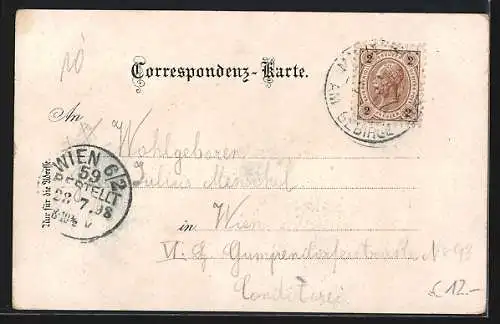 10
Correspondenz-Karte.
2 2
2 2
AM GEBIRGE
An
Wohlgeboren
Julius
in Wien
VI. Gumpendorferstraße No 93
Conditorei
Nur für die Adresse.
WIEN 6/2
59
BESTELLT
28 7 98
€ 12.-